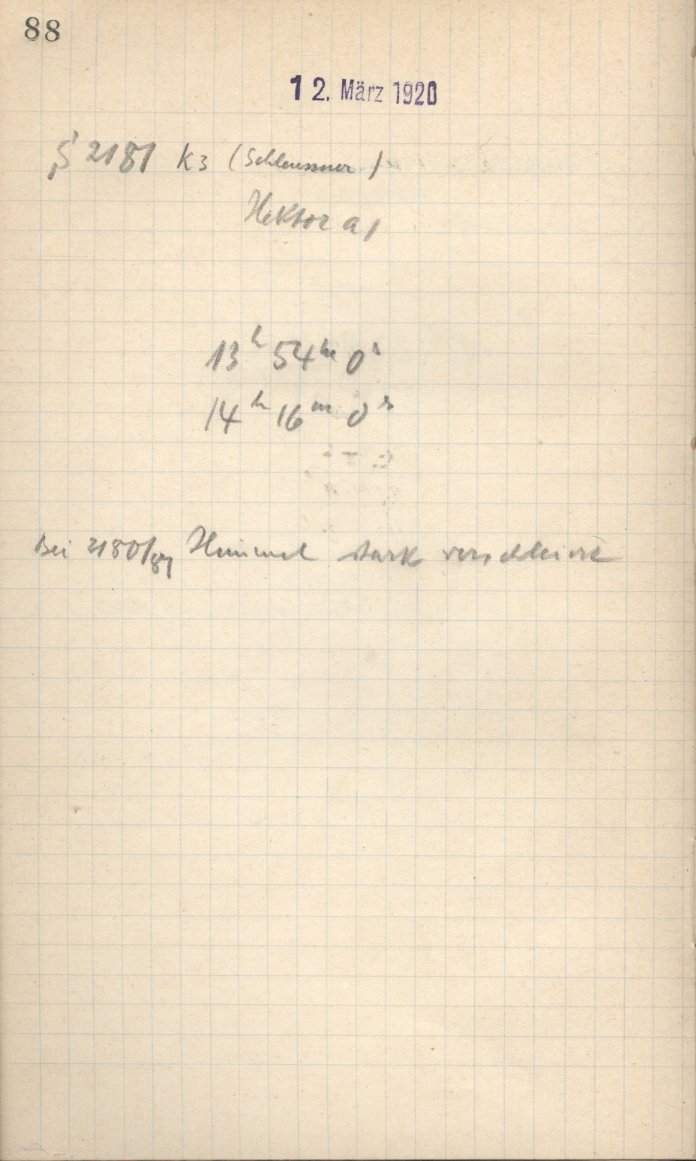 88
12. März 1920
S 2181 K3 (Schleussner)
Hektor a)
13h 54m 0s
14h 16m 0s
Bei 2180/81 Himmel stark verschleiert